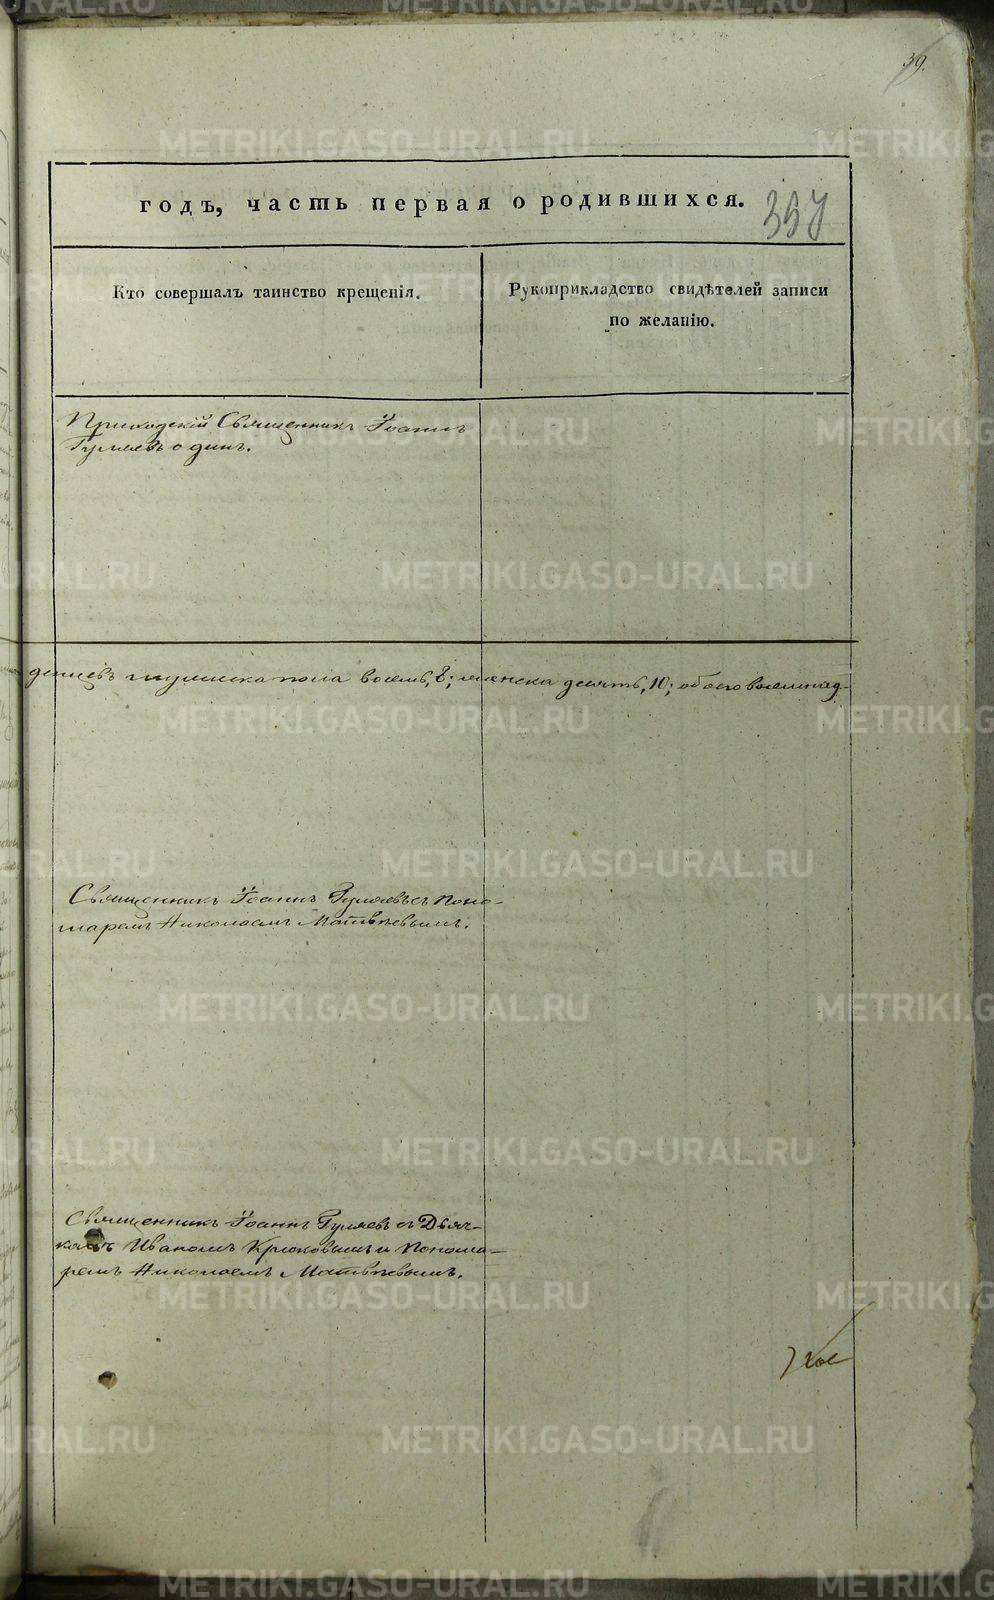 39.
годъ, часть первая о родившихся. 357
Кто совершалъ таинство крещенія.
Рукоприкладство свидѣтелей записи
по желанію.
Приходскій Священникъ Іоаннъ
Гуляевъ одинъ.
денцевъ мужеска пола восемь, 8; женска десять, 10; обоего восемнад-
Священникъ Іоаннъ Гуляевъ съ Поно-
маремъ Николаемъ Матвѣевымъ.
Священникъ Іоаннъ Гуляевъ съ Дьяч-
комъ Иваномъ Крюковымъ и Понома-
ремъ Николаемъ Матвѣевымъ.
METRIKI.GASO-URAL.RU